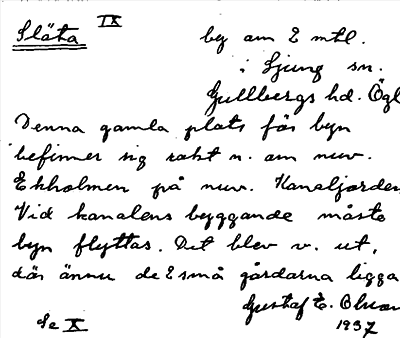 Släta IX
by om 2 mtl.
i Ljung sn.
Gullbergs hd. Ögl
Denna gamla plats för byn
befinner sig rakt n. om nuv.
Ekholmen på nuv. Kanaljorden
Vid kanalens byggande måste
byn flyttas. Det blev v. ut,
där ännu de 2 små gårdarna ligga
Gustaf E. Olson
Se X 1937